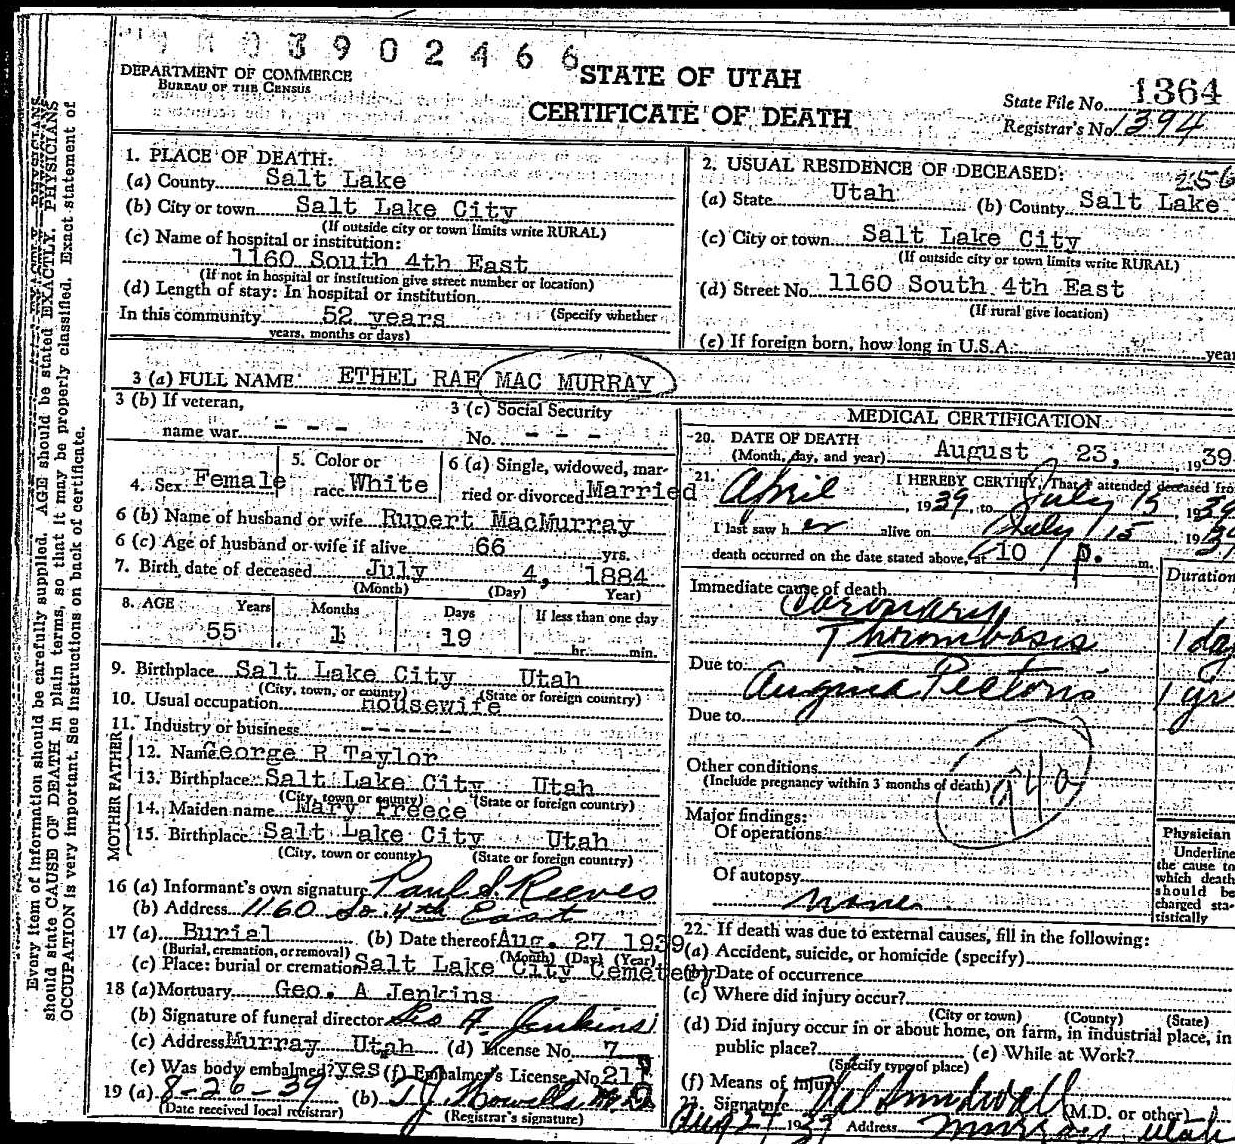 03902466
DEPARTMENT OF COMMERCE
BUREAU OF THE CENSUS
STATE OF UTAH
CERTIFICATE OF DEATH
State File No. 1364
Registrar's No. 1394
1. PLACE OF DEATH:
(a) County Salt Lake
(b) City or town Salt Lake City
(If outside city or town limits write RURAL)
(c) Name of hospital or institution:
1160 South 4th East
(If not in hospital or institution give street number or location)
(d) Length of stay: In hospital or institution
In this community 52 years (Specify whether
years, months or days)
2. USUAL RESIDENCE OF DECEASED: 256
(a) State Utah (b) County Salt Lake
(c) City or town Salt Lake City
(If outside city or town limits write RURAL)
(d) Street No. 1160 South 4th East
(If rural give location)
(e) If foreign born, how long in U.S.A. year
3 (a) FULL NAME ETHEL RAE MAC MURRAY
3 (b) If veteran,
name war - - -
3 (c) Social Security
No. - - -
4. Sex Female
5. Color or
race White
6 (a) Single, widowed, mar-
ried or divorced Married
6 (b) Name of husband or wife Rupert MacMurray
6 (c) Age of husband or wife if alive 66 yrs.
7. Birth date of deceased July 4, 1884
(Month) (Day) Year)
8. AGE Years Months Days If less than one day
55 1 19 hr. min.
9. Birthplace Salt Lake City Utah
(City, town, or county) (State or foreign country)
10. Usual occupation Housewife
11. Industry or business ------
FATHER
12. Name George R Taylor
13. Birthplace Salt Lake City Utah
(City, town or county) (State or foreign country)
MOTHER
14. Maiden name Mary Preece
15. Birthplace Salt Lake City Utah
(City, town or county) (State or foreign country)
16 (a) Informant's own signature Paul S. Reeves
(b) Address 1160 So. 4th East
17 (a) Burial (b) Date thereof Aug. 27 1939
(Burial, cremation, or removal) (Month) (Day) (Year)
(c) Place: burial or cremation Salt Lake City Cemetery
18 (a) Mortuary Geo. A Jenkins
(b) Signature of funeral director Geo A. Jenkins
(c) Address Murray Utah (d) License No. 7
(e) Was body embalmed? yes (f) Embalmer's License No. 211
19 (a) 8-26-39 (b)
(Date received local registrar) (Registrar's signature)
MEDICAL CERTIFICATION
20. DATE OF DEATH
(Month, day, and year) August 23, 1939
21. I HEREBY CERTIFY, That I attended deceased from
April, 1939, to July 15 1939
I last saw her alive on July 15 1939
death occurred on the date stated above, at 10 p. m.
Immediate cause of death Duration
Coronary
Thrombosis 1 day
Due to
Angina Pectoris 1 yr
Due to
Other conditions
(Include pregnancy within 3 months of death)
Major findings:
Of operations
Of autopsy
none
Physician
Underline
the cause to
which death
should be
charged sta-
tistically
22. If death was due to external causes, fill in the following:
(a) Accident, suicide, or homicide (specify)
(b) Date of occurrence
(c) Where did injury occur?
(City or town) (County) (State)
(d) Did injury occur in or about home, on farm, in industrial place, in
public place? (e) While at Work?
(Specify type of place)
(f) Means of injury
23. Signature (M.D. or other)
Aug 27 1939 Address Murray Utah
Every item of information should be carefully supplied. AGE should be stated EXACTLY. PHYSICIANS
should state CAUSE OF DEATH in plain terms, so that it may be properly classified. Exact statement of
OCCUPATION is very important. See instructions on back of certificate.